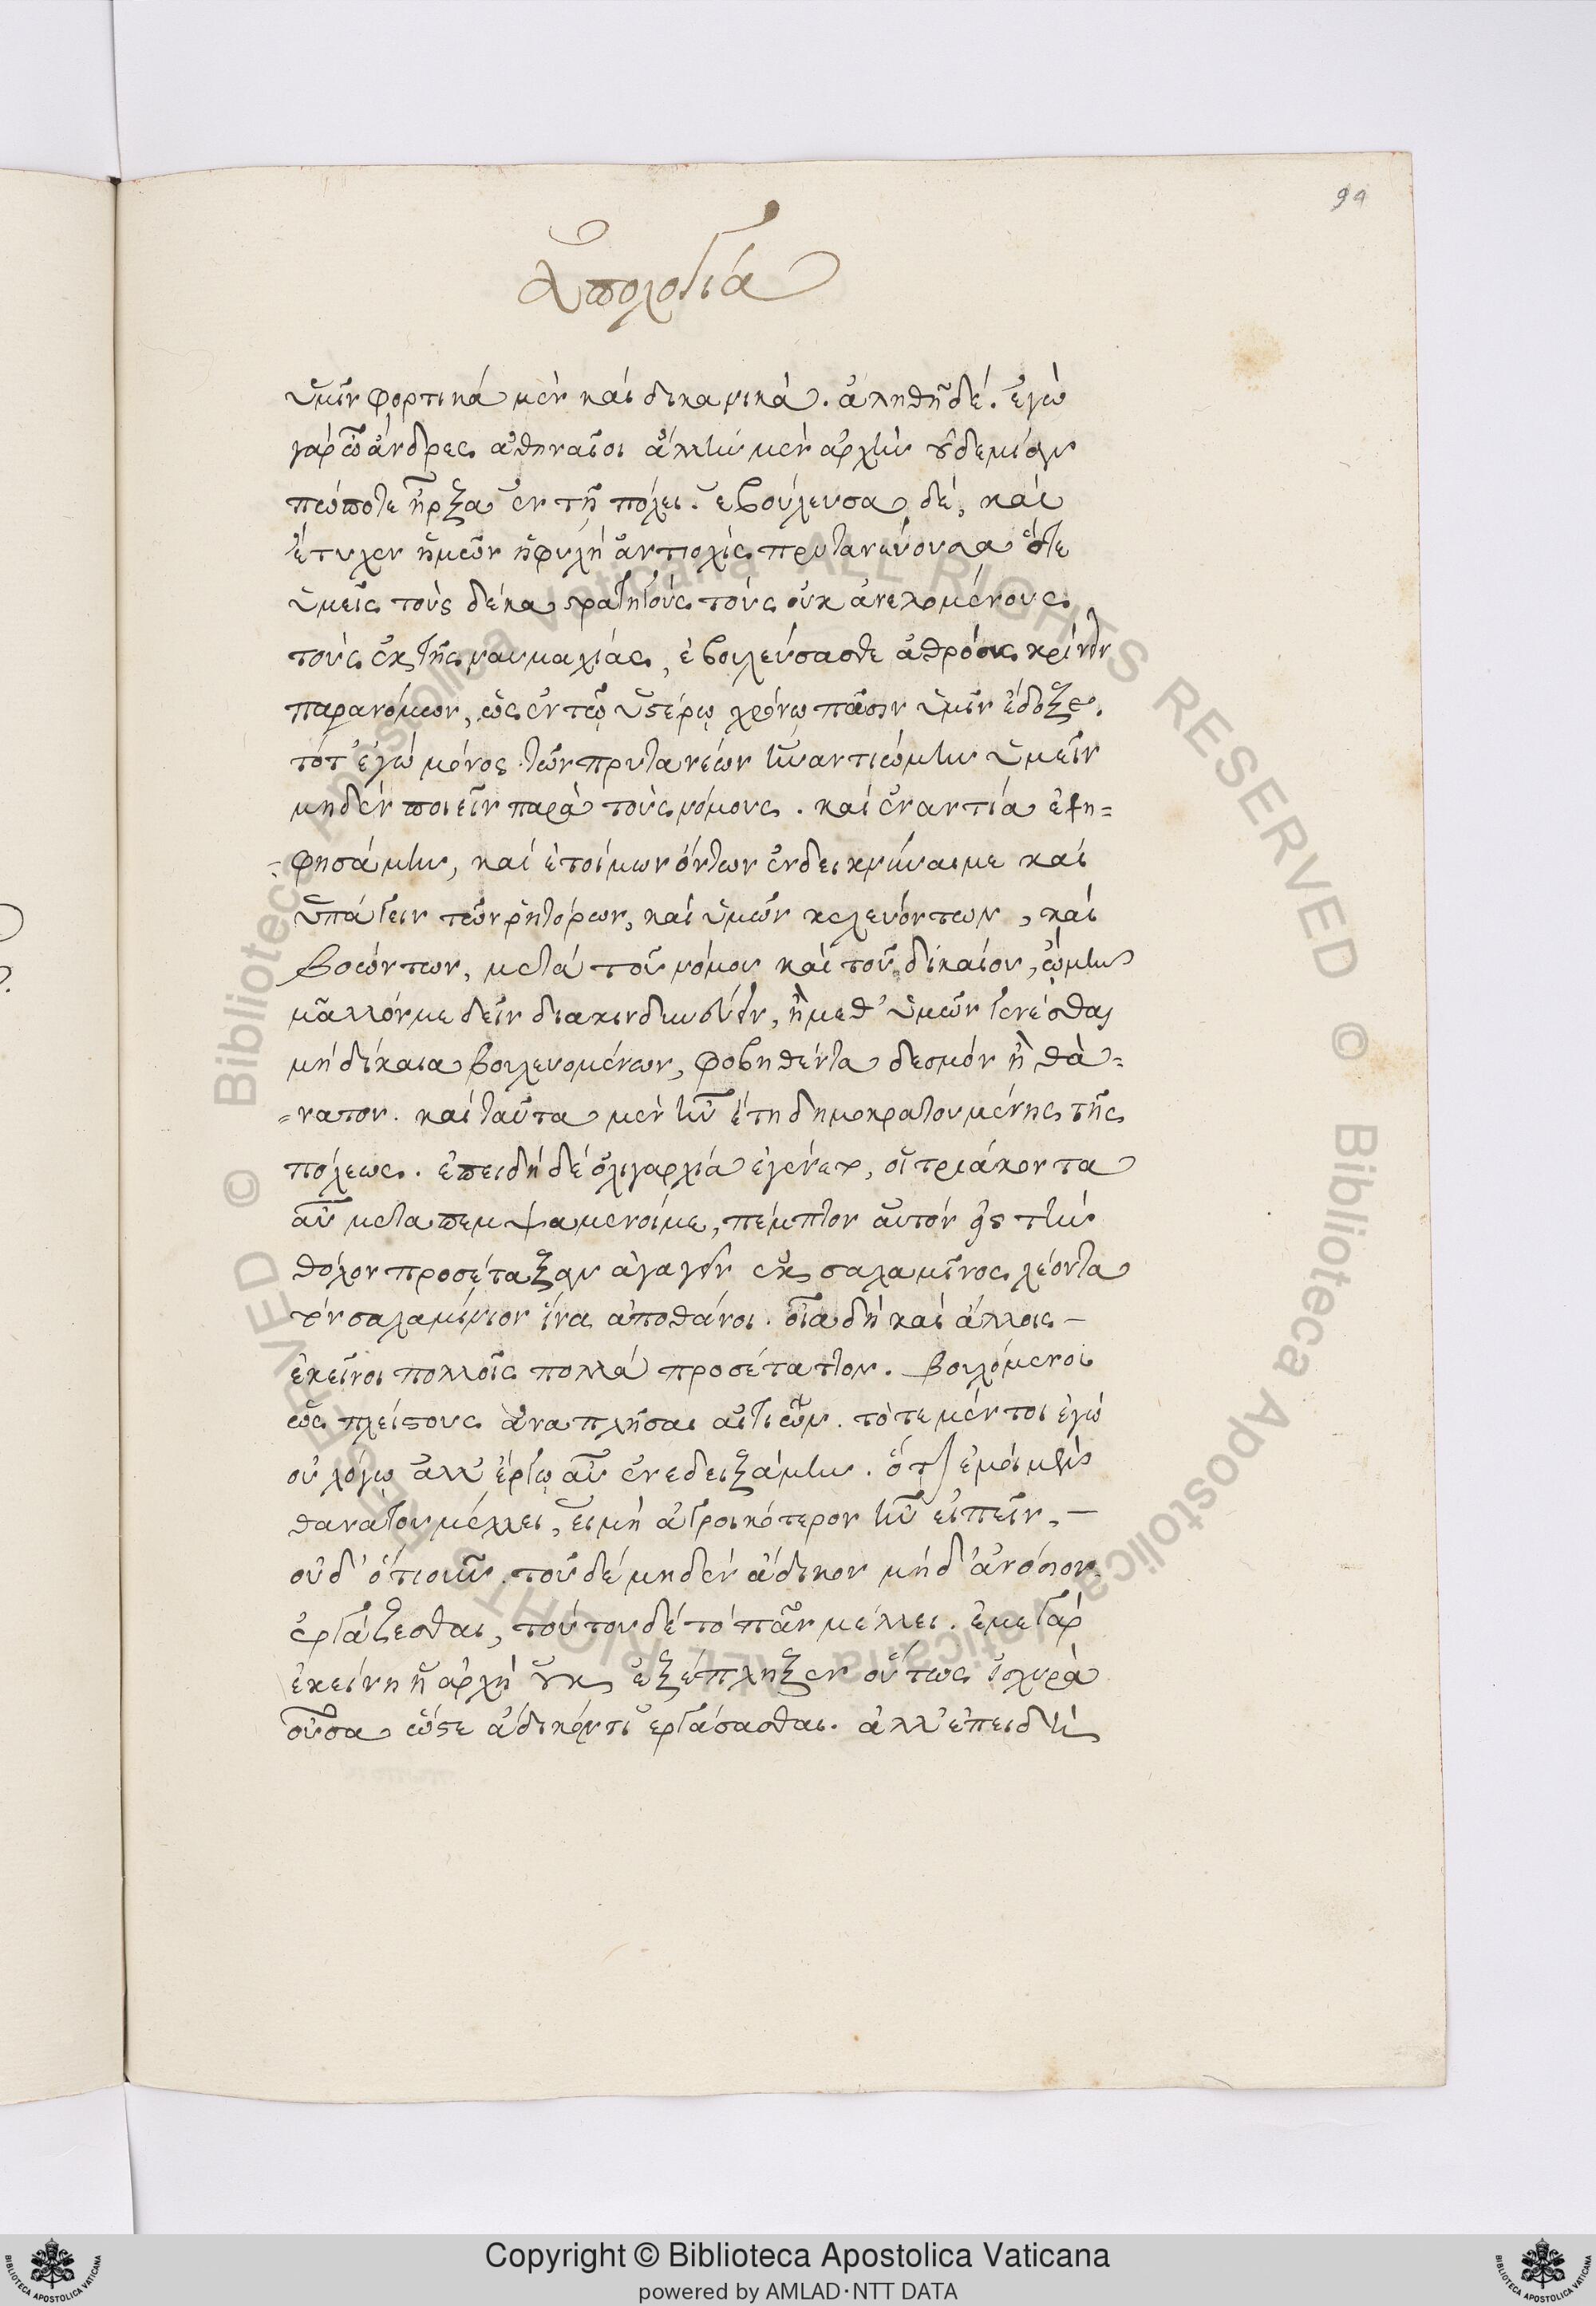 94
ἀπολογία
ὑμῖν φορτικά μέν καί δικανικά. ἀληθῆ δέ. ἐγὼ
γάρ ὦ ἄνδρες ἀθηναῖοι ἄλλην μέν ἀρχήν οὐδεμίαν
πώποτε ἦρξα ἐν τῇ πόλει. ἐβούλευσα δέ, καί
ἔτυχεν ἡμῶν ἡ φυλή ἀντιοχίς πρυτανεύουσα ὅτε
ὑμεῖς τούς δέκα στρατηγούς τούς οὐκ ἀνελομένους
τούς ἐκ τῆς ναυμαχίας, ἐβουλεύσασθε ἀθρόους κρίνειν
παρανόμων, ὡς ἐν τῷ ὑστέρῳ χρόνῳ πᾶσιν ὑμῖν ἔδοξε.
τότ' ἐγώ μόνος τῶν πρυτανέων ἠναντιώμην ὑμεῖν
μηδέν ποιεῖν παρὰ τούς νόμους. καί ἐναντία ἐψη=
φησάμην, καί ἑτοίμων ὄντων ἐνδεικνύναι με καί
ὑπάγειν τῶν ῥητόρων, καί ὑμῶν κελευόντων, καί
βοώντων, μετά τοῦ νόμου καί τοῦ δικαίου, ᾤμην
μᾶλλόν με δεῖν διακινδυνεύειν, ἢ μεθ' ὑμῶν γενέσθαι
μή δίκαια βουλευομένων, φοβηθέντα δεσμόν ἢ θά=
=νατον. καί ταῦτα μέν ἦν ἔτη δημοκρατουμένης τῆς
πόλεως. ἐπειδή δέ ὀλιγαρχία ἐγένετο, οἱ τριάκοντα
αὖ μεταπεμψάμενοί με, πέμπτον αὐτόν εἰς τήν
θόλον προσέταξαν ἀγαγεῖν ἐκ σαλαμῖνος λέοντα
τόν σαλαμίνιον ἵνα ἀποθάνοι. οἷα δή καί ἄλλοις –
ἐκεῖνοι πολλοῖς πολλά προσέταττον. βουλόμενοι
ὡς πλείστους ἀναπλῆσαι αἰτιῶν. τότε μέντοι ἐγώ
οὐ λόγῳ ἀλλ' ἔργῳ αὖ ἐνεδειξάμην. ὅτι ἐμοί μέν
θανάτου μέλλει, εἰ μή ἀγροικότερον ἦν εἰπεῖν, –
οὐδ' ὁτιοῦν. τοῦ δέ μηδέν ἄδικον μήδ' ἀνόσιον
ἐργάζεσθαι, τούτου δέ τό πᾶν μέλλει. ἐμέ γάρ
ἐκείνη ἡ ἀρχή οὐκ ἐξέπληξεν οὕτως ἰσχυρὰ
οὖσα ὥστε ἄδικόν τι ἐργάσασθαι. ἀλλ' ἐπειδή
Copyright © Biblioteca Apostolica Vaticana
powered by AMLAD·NTT DATA